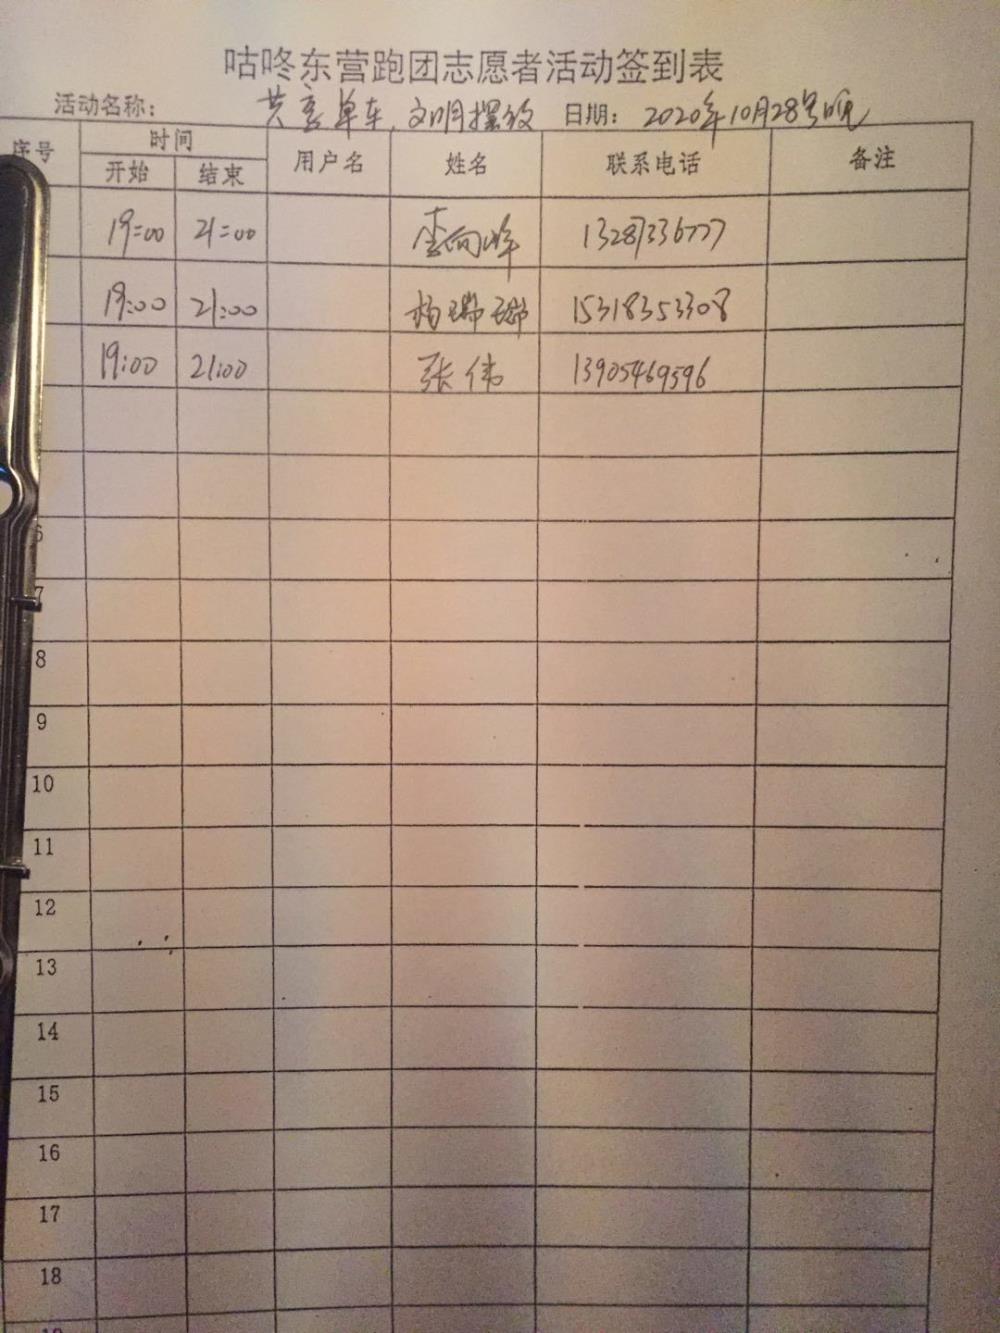 咕咚东营跑团志愿者活动签到表
活动名称: 共享单车,文明摆放 日期: 2020年10月28号晚
序号 时间 用户名 姓名 联系电话 备注
开始 结束
19:00 21:00 李向峰 13287336777
19:00 21:00 杨瑞 15318353308
19:00 21:00 张伟 13905469596
6
7
8
9
10
11
12
13
14
15
16
17
18